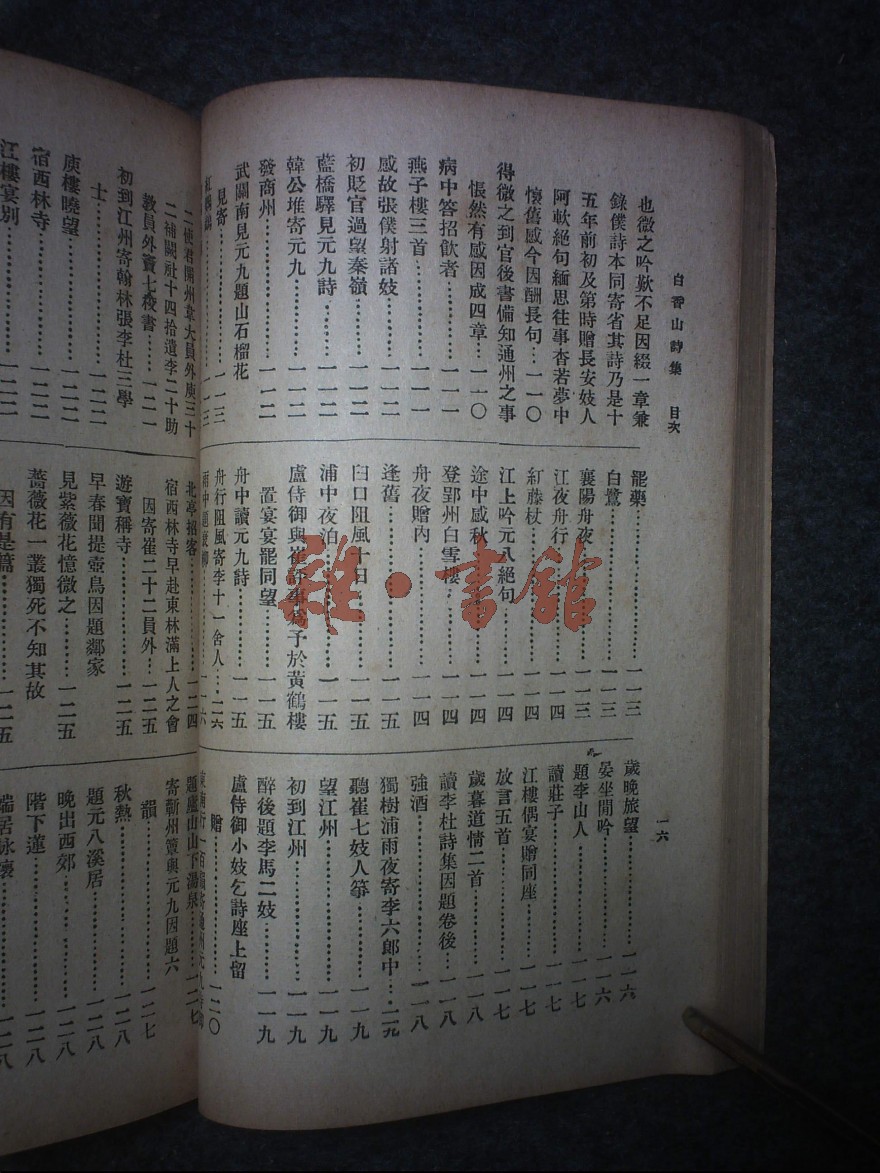 白香山詩集　目次
一六
也微之吟歎不足因綴一章兼
錄僕詩本同寄省其詩乃是十
五年前初及第時贈長安妓人
阿軟絕句緬思往事杳若夢中
懷舊感今因酬長句…一一〇
得微之到官後書備知通州之事
悵然有感因成四章…一一〇
病中答招飲者………一一一
燕子樓三首…………一一一
感故張僕射諸妓……一一二
初貶官過望秦嶺……一一二
藍橋驛見元九詩……一一二
韓公堆寄元九………一一二
發商州………………一一二
武關南見元九題山石榴花
見寄…………………一一三
一一三
罷藥…………………一一三
白鷺…………………一一三
襄陽舟夜……………一一三
江夜舟行……………一一四
紅藤杖………………一一四
江上吟元八絕句……一一四
途中感秋……………一一四
登郢州白雪樓………一一四
舟夜贈內……………一一四
逢舊…………………一一五
臼口阻風十日………一一五
浦中夜泊……………一一五
盧侍御與崔評事爲予於黃鶴樓
置宴宴罷同望………一一五
舟中讀元九詩………一一五
舟行阻風寄李十一舍人…一一六
雨中題衰柳…………一一六
歲晚旅望……………一一六
晏坐閒吟……………一一六
題李山人……………一一七
讀莊子………………一一七
江樓偶宴贈同座……一一七
放言五首……………一一七
歲暮道情二首………一一八
讀李杜詩集因題卷後…一一八
強酒…………………一一八
獨樹浦雨夜寄李六郎中…一一九
聽崔七妓人箏………一一九
望江州………………一一九
初到江州……………一一九
醉後題李馬二妓……一一九
盧侍御小妓乞詩座上留
贈……………………一二〇
二使君開州韋大員外庾三十
二補闕杜十四拾遺李二十助
教員外竇七校書……一二一
初到江州寄翰林張李杜三學
士……………………一二二
庾樓曉望……………一二二
宿西林寺……………一二二
江樓宴別……………一二二
北亭招客……………一二四
宿西林寺早赴東林滿上人之會
因寄崔二十二員外…一二五
遊寶稱寺……………一二五
早春聞提壺鳥因題鄰家
見紫薇花憶微之……一二五
薔薇花一叢獨死不知其故
因有是篇……………一二五
題廬山山下湯泉……一二七
寄蘄州簟與元九因題六
韻……………………一二七
秋熱…………………一二八
題元八溪居…………一二八
晚出西郊……………一二八
階下蓮………………一二八
端居詠懷……………一二八
雜·書館